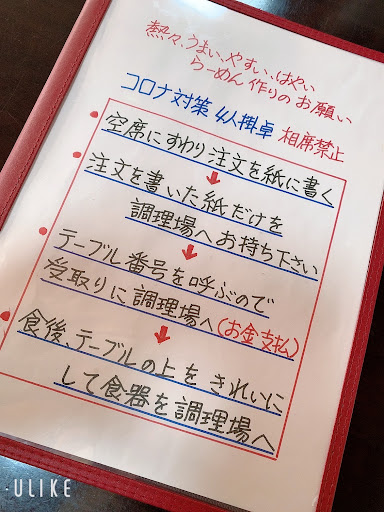 熱々、うまい、やすい、はやい
らーめん作りのお願い
コロナ対策 4人掛卓 相席禁止
空席にすわり注文を紙に書く
注文を書いた紙だけを
調理場へお持ち下さい
テーブル番号を呼ぶので
受取りに調理場へ(お金支払)
食後、テーブルの上をきれいに
して食器を調理場へ
ULIKE